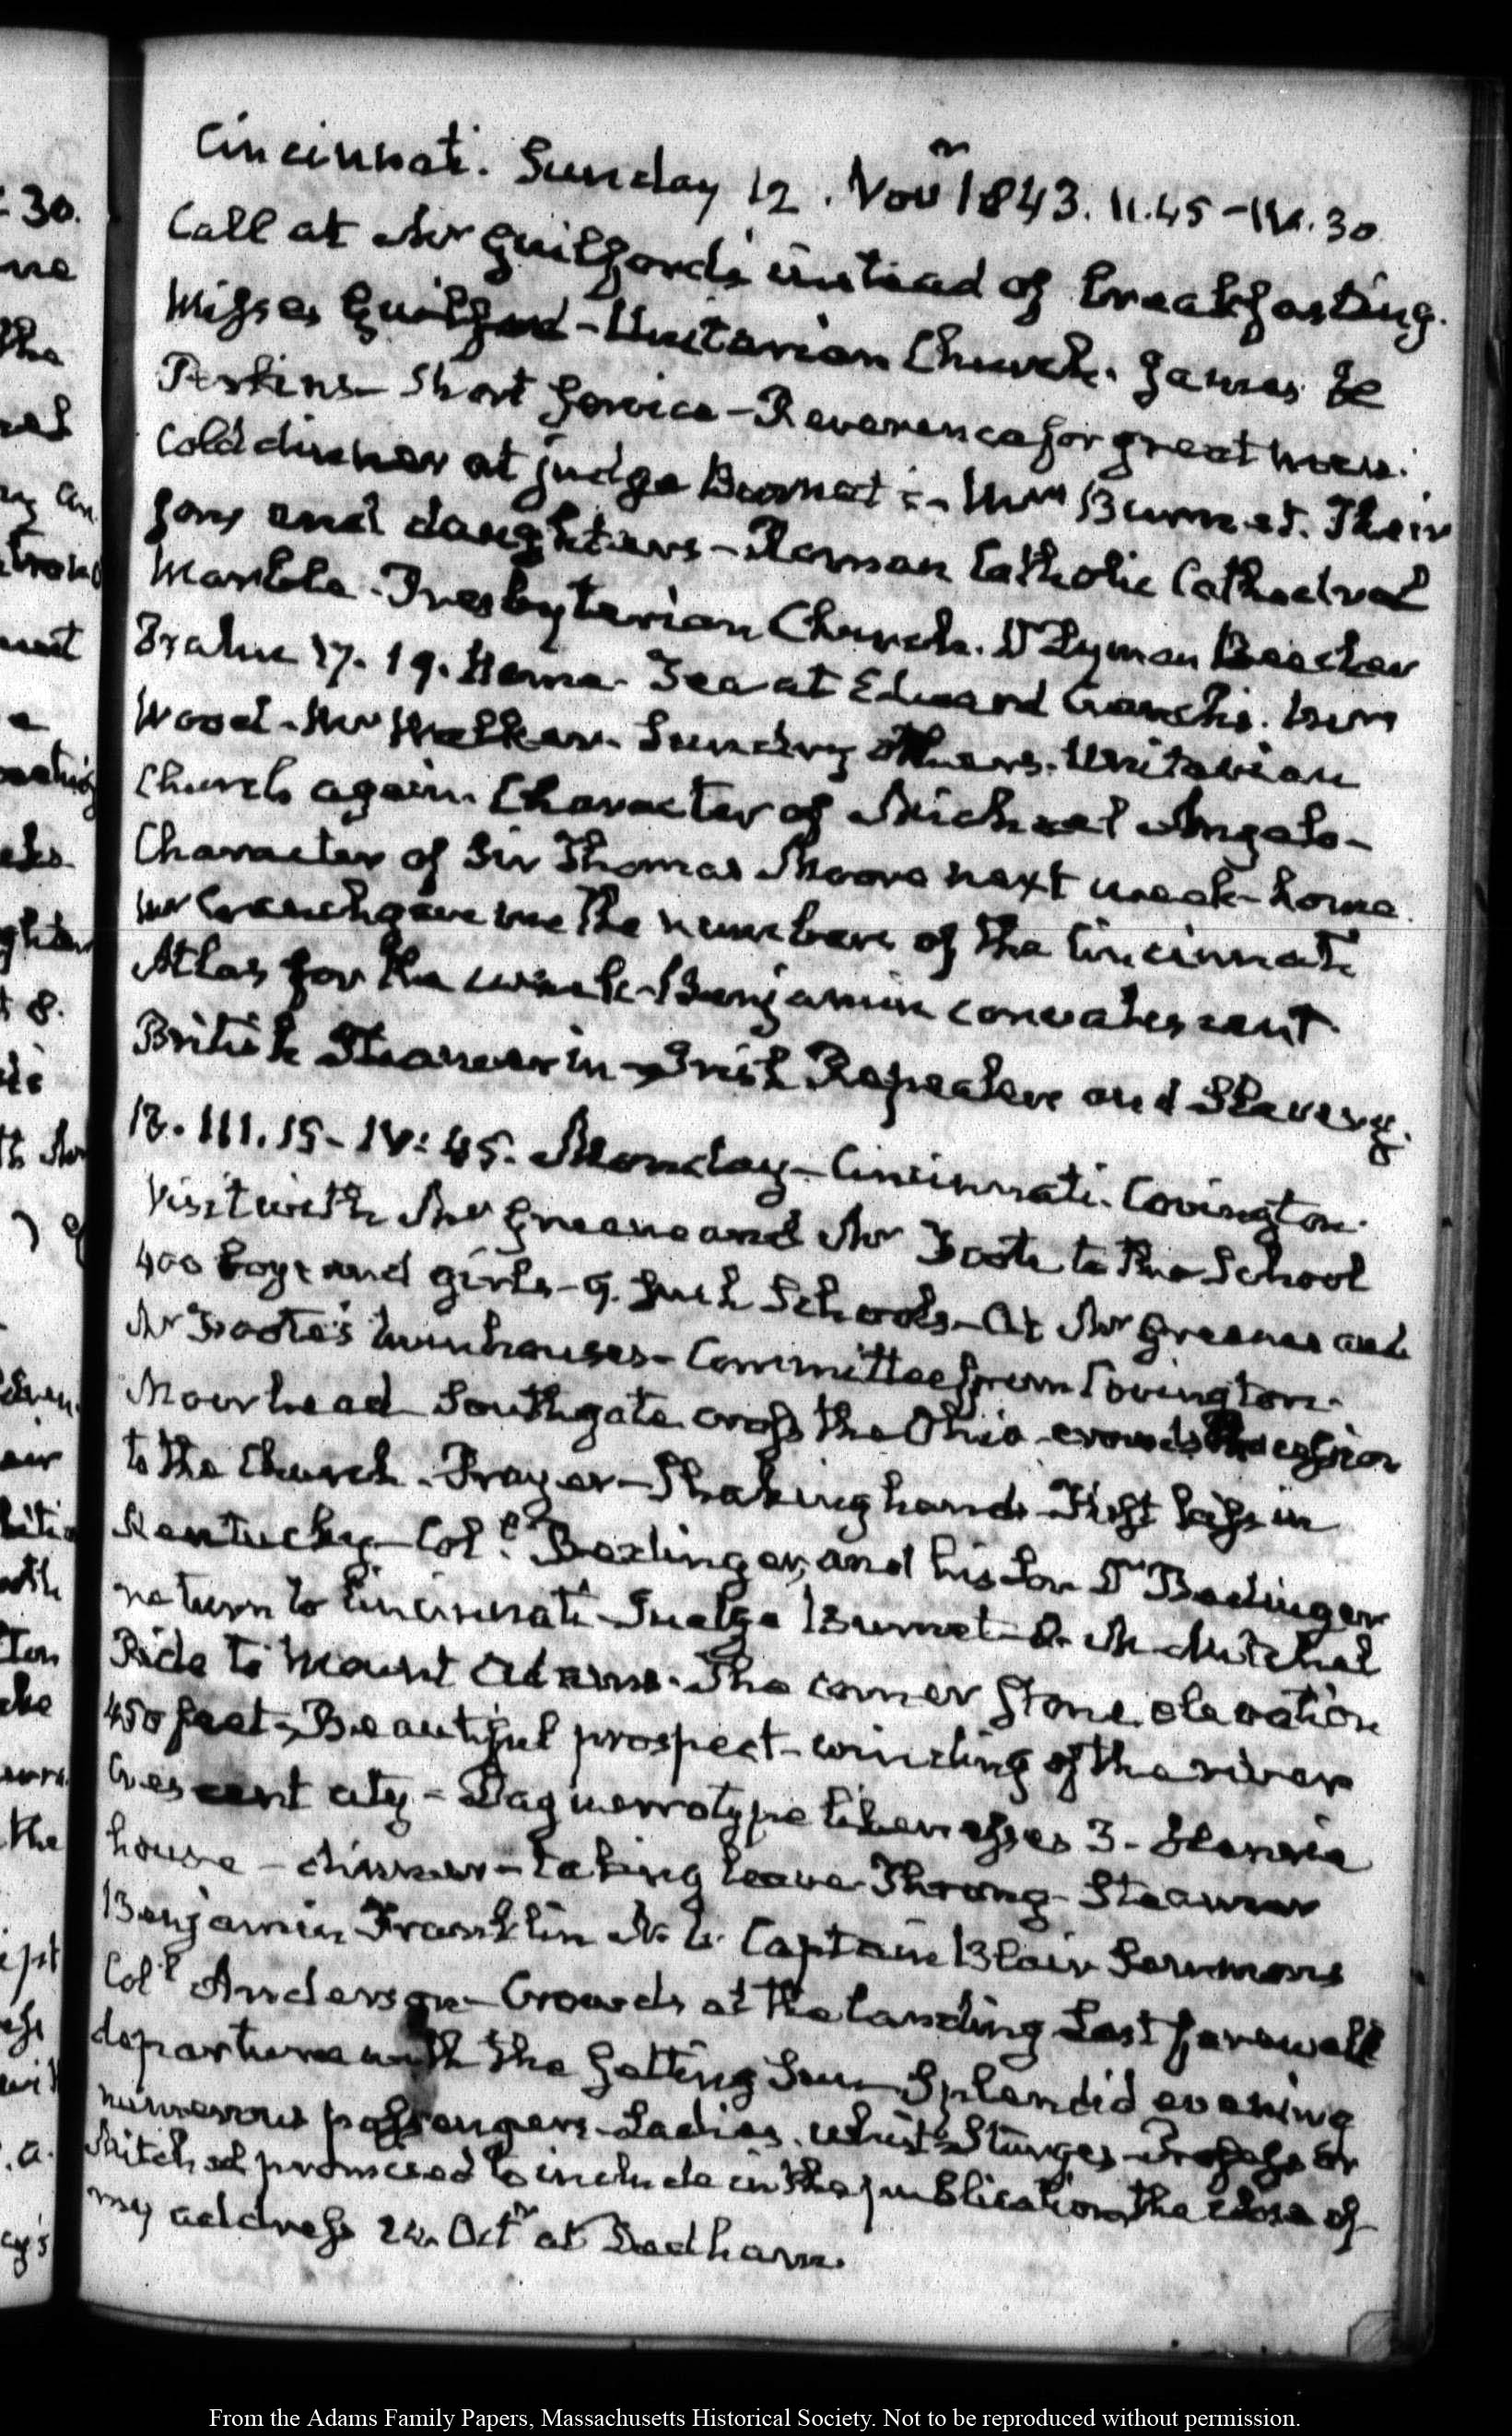 Cincinnati. Sunday 12. Novr 1843. II.45 – IV.30
Call at Mr Guilford's instead of breakfasting.
Misses Guilford – Unitarian Church. James H
Perkins – Short service – Reverence for great men.
Cold dinner at judge Burnet's – Mrs Burnet. Their
sons and daughters – Roman Catholic Cathedral
Marble. Presbyterian Church. Dr Lyman Beecher
Psalm 17. 19. Home. Tea at Edward Cranch's. Mrs
Wood – Mr Walker. Sundry others. Unitarian
Church again. Character of Michael Angelo –
Character of Sir Thomas Moore next week – home.
Mr Cranch gave me the numbers of the Cincinnati
Atlas for the week – Benjamin convalescent.
British Steamer in – Irish Repealers and Slavery.
13. III.15 – IV:45. Monday – Cincinnati. Covington.
Visit with Mr Greene and Mr Foote to the School
400 boys and girls – 9. such Schools – At Mr Greene's and
Mr Foote's twin houses – Committee from Covington.
Moorhead – Southgate. cross the Ohio – crowds Procession
to the Church. Prayer – Shaking hands – First kiss in
Kentucky – Coll Bedinger, and his son Dr Bedinger
return to Cincinnati – Judge Burnet – O. M. Mitchel
Ride to Mount Adams. The corner stone, elevation
450 feet, Beautiful prospect – winding of the river
Crescent city – Daguerrotype likenesses 3 – Henrie
house – dinner – taking leave. Throng – Steamer
Benjamin Franklin Captain Blair Summons
Coll Anderson – Crowds at the landing Last farewell
departure with the setting Sun – Splendid evening
numerous passengers – Ladies. whist Sturges – Professor
Mitchel promised to include in the publication, the close of
my address Octr at Dedham.
From the Adams Family Papers, Massachusetts Historical Society. Not to be reproduced without permission.